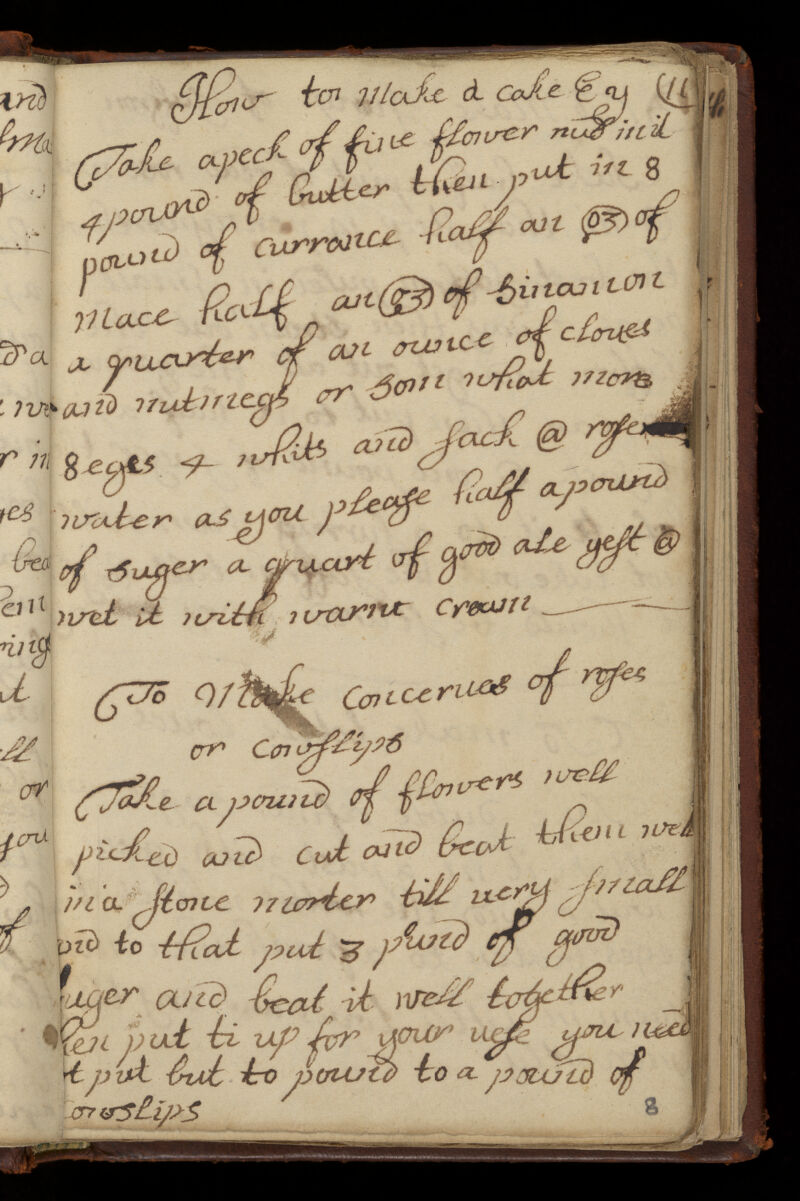 How to Make a cake E y (11
Take a peck of fine flower rub in it
4 pound of butter then put in 8
pound of currance half an o3 of
mace half an o3 of Sinamon
a quarter of an ounce of cloues
and nutmegs or Som what more
8 eges 4 whits and sack @ rose
water as you please half a pound
of suger a quart of good ale yest @
wet it with warm cream
To Make concerues of roses
or cowslips
Take a pound of flowers well
picked and cut and beat them well
in a stone morter till uery small
and to that put 3 pound of good
suger and beat it well together
then put ti up for your uese you need
put but to pound to a pound of
cowslips
8
and
d a
r in
bea
ring
ll
or
you
of